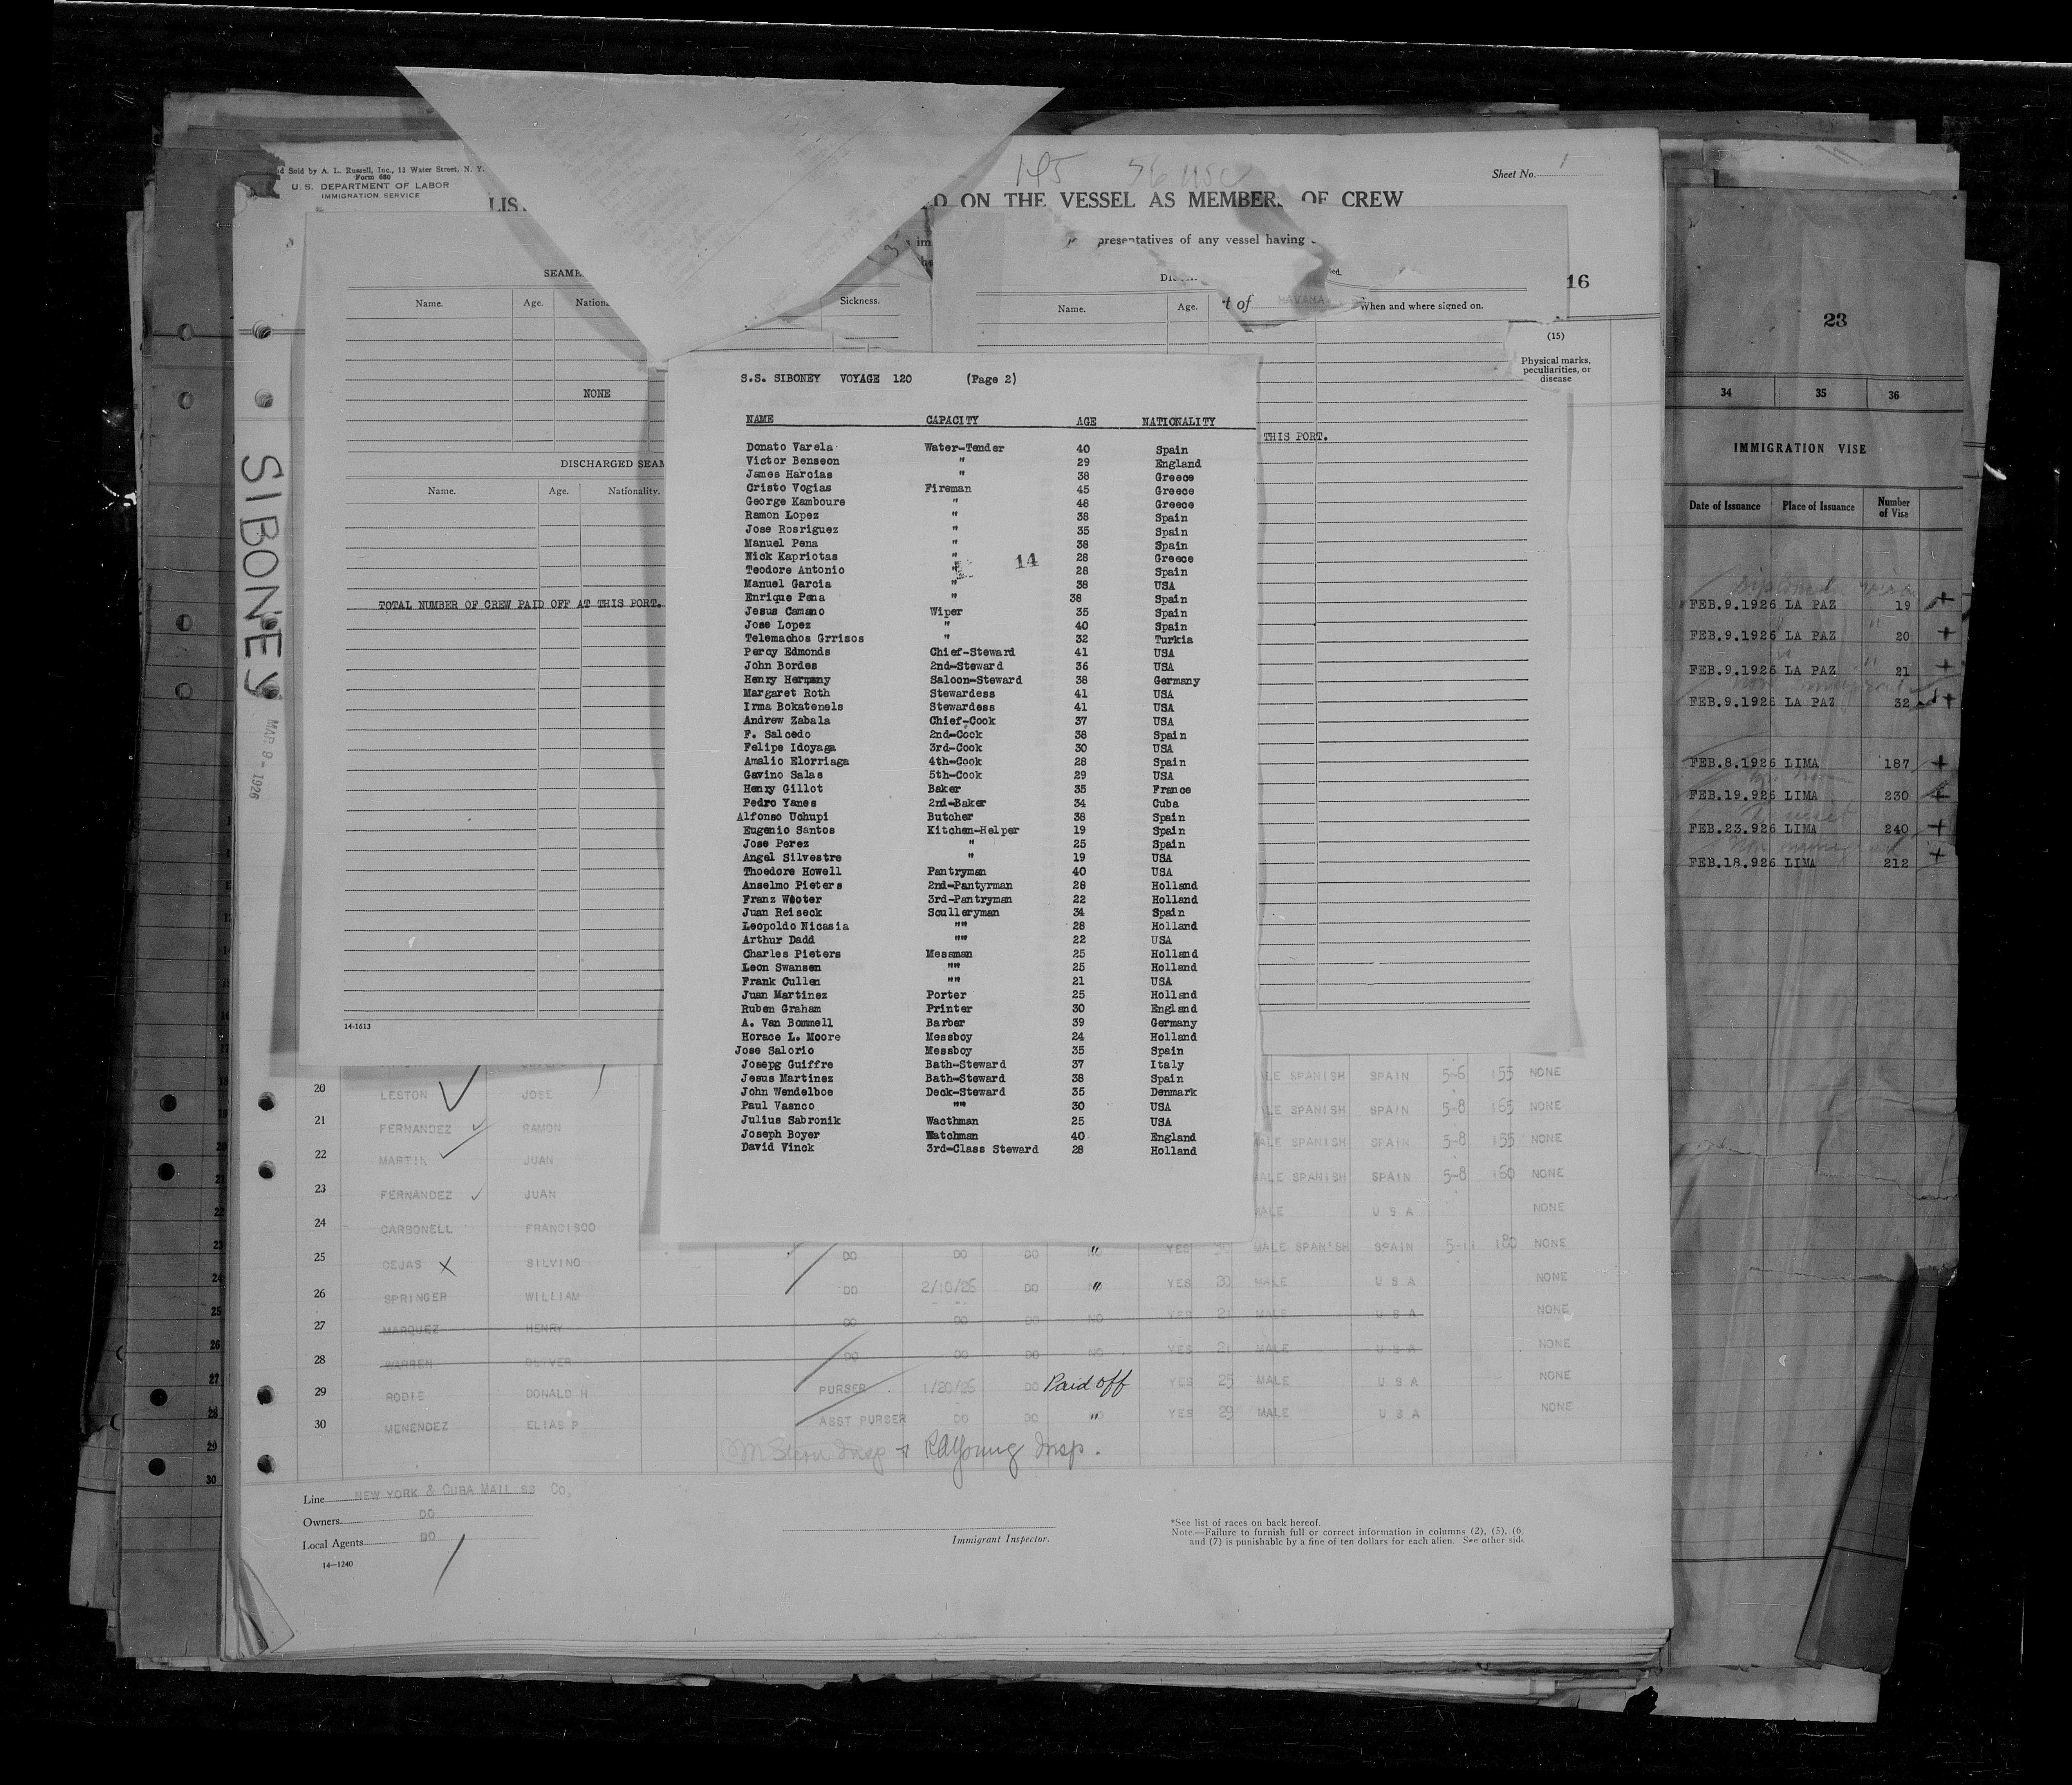 d Sold by A. L. Russell, Inc., 11 Water Street, N. Y.
Form 680
U. S. DEPARTMENT OF LABOR
IMMIGRATION SERVICE
Sheet No. 1
ON THE VESSEL AS MEMBERS OF CREW
presentatives of any vessel having
16
23
Name. Age. Sickness.
Name. Age. t of HAVANA When and where signed on.
(15)
Physical marks, peculiarities, or disease
NONE
THIS PORT.
DISCHARGED SEAM
Name. Age. Nationality.
TOTAL NUMBER OF CREW PAID OFF AT THIS PORT.
14-1613
SIBONEY
MAR 8 - 1926
S.S. SIBONEY VOYAGE 120 (Page 2)
NAME CAPACITY AGE NATIONALITY
Donato Varela Water-Tender 40 Spain
Victor Benseon " 29 England
James Harcias " 38 Greece
Cristo Vogias Fireman 45 Greece
George Kamboure " 48 Greece
Ramon Lopez " 38 Spain
Jose Rosriguez " 35 Spain
Manuel Pena " 38 Spain
Nick Kapriotas " 28 Greece
14
Teodore Antonio " 28 Spain
Manuel Garcia " 38 USA
Enrique Pena " 38 Spain
Jesus Camano Wiper 35 Spain
Jose Lopez " 40 Spain
Telemachos Grrisos " 32 Turkia
Percy Edmonds Chief-Steward 41 USA
John Bordes 2nd-Steward 36 USA
Henry Hermany Saloon-Steward 38 Germany
Margaret Roth Stewardess 41 USA
Irma Bokatenels Stewardess 41 USA
Andrew Zabala Chief-Cook 37 USA
F. Salcedo 2nd-Cook 38 Spain
Felipe Idoyaga 3rd-Cook 30 USA
Amalio Elorriaga 4th-Cook 28 Spain
Gavino Salas 5th-Cook 29 USA
Henry Gillot Baker 35 France
Pedro Yanes 2nd-Baker 34 Cuba
Alfonso Uchupi Butcher 38 Spain
Eugenio Santos Kitchen-Helper 19 Spain
Jose Perez " 25 Spain
Angel Silvestre " 19 USA
Thoedore Howell Pantryman 40 USA
Anselmo Pieters 2nd-Pantyrman 28 Holland
Franz Wooter 3rd-Pantryman 22 Holland
Juan Reiseck Sculleryman 34 Spain
Leopoldo Nicasia "" 28 Holland
Arthur Dadd "" 22 USA
Charles Pieters Messman 25 Holland
Leon Swansen "" 25 Holland
Frank Cullen "" 21 USA
Juan Martinez Porter 25 Holland
Ruben Graham Printer 30 England
A. Van Bommell Barber 39 Germany
Horace L. Moore Messboy 24 Holland
Jose Salorio Messboy 35 Spain
Josepg Guiffre Bath-Steward 37 Italy
Jesus Martinez Bath-Steward 38 Spain
John Wendelboe Deck-Steward 35 Denmark
Paul Vasnco "" 30 USA
Julius Sabronik Wacthman 25 USA
Joseph Boyer Watchman 40 England
David Vinck 3rd-Class Steward 28 Holland
20 LESTON JOSE SPANISH SPAIN 5-6 155 NONE
21 FERNANDEZ RAMON SPANISH SPAIN 5-8 165 NONE
22 MARTIN JUAN SPANISH SPAIN 5-8 155 NONE
23 FERNANDEZ JUAN SPANISH SPAIN 5-8 160 NONE
24 CARBONELL FRANCISCO U S A NONE
25 CEJAS SILVINO DO DO DO " YES MALE SPANISH SPAIN 180 NONE
26 SPRINGER WILLIAM DO 2/10/26 DO " YES 30 MALE U S A NONE
27 MARQUEZ HENRY DO DO DO NO YES 21 MALE U S A NONE
28 WARREN OLIVER DO DO DO NO YES 21 MALE U S A NONE
29 ROBIE DONALD H PURSER 1/20/26 DO Paid off YES 25 MALE U S A NONE
30 MENENDEZ ELIAS P ASST PURSER DO DO " YES 29 MALE U S A NONE
Line NEW YORK & CUBA MAIL SS Co.
Owners DO
Local Agents DO
14-1240
Immigrant Inspector.
*See list of races on back hereof.
Note.—Failure to furnish full or correct information in columns (2), (5), (6)
and (7) is punishable by a fine of ten dollars for each alien. See other side
34 35 36
IMMIGRATION VISE
Date of Issuance Place of Issuance Number of Vise
FEB.9.1926 LA PAZ 19
FEB.9.1926 LA PAZ 20
FEB.9.1926 LA PAZ 21
FEB.9.1926 LA PAZ 32
FEB.8.1926 LIMA 187
FEB.19.926 LIMA 230
FEB.23.926 LIMA 240
FEB.18.926 LIMA 212